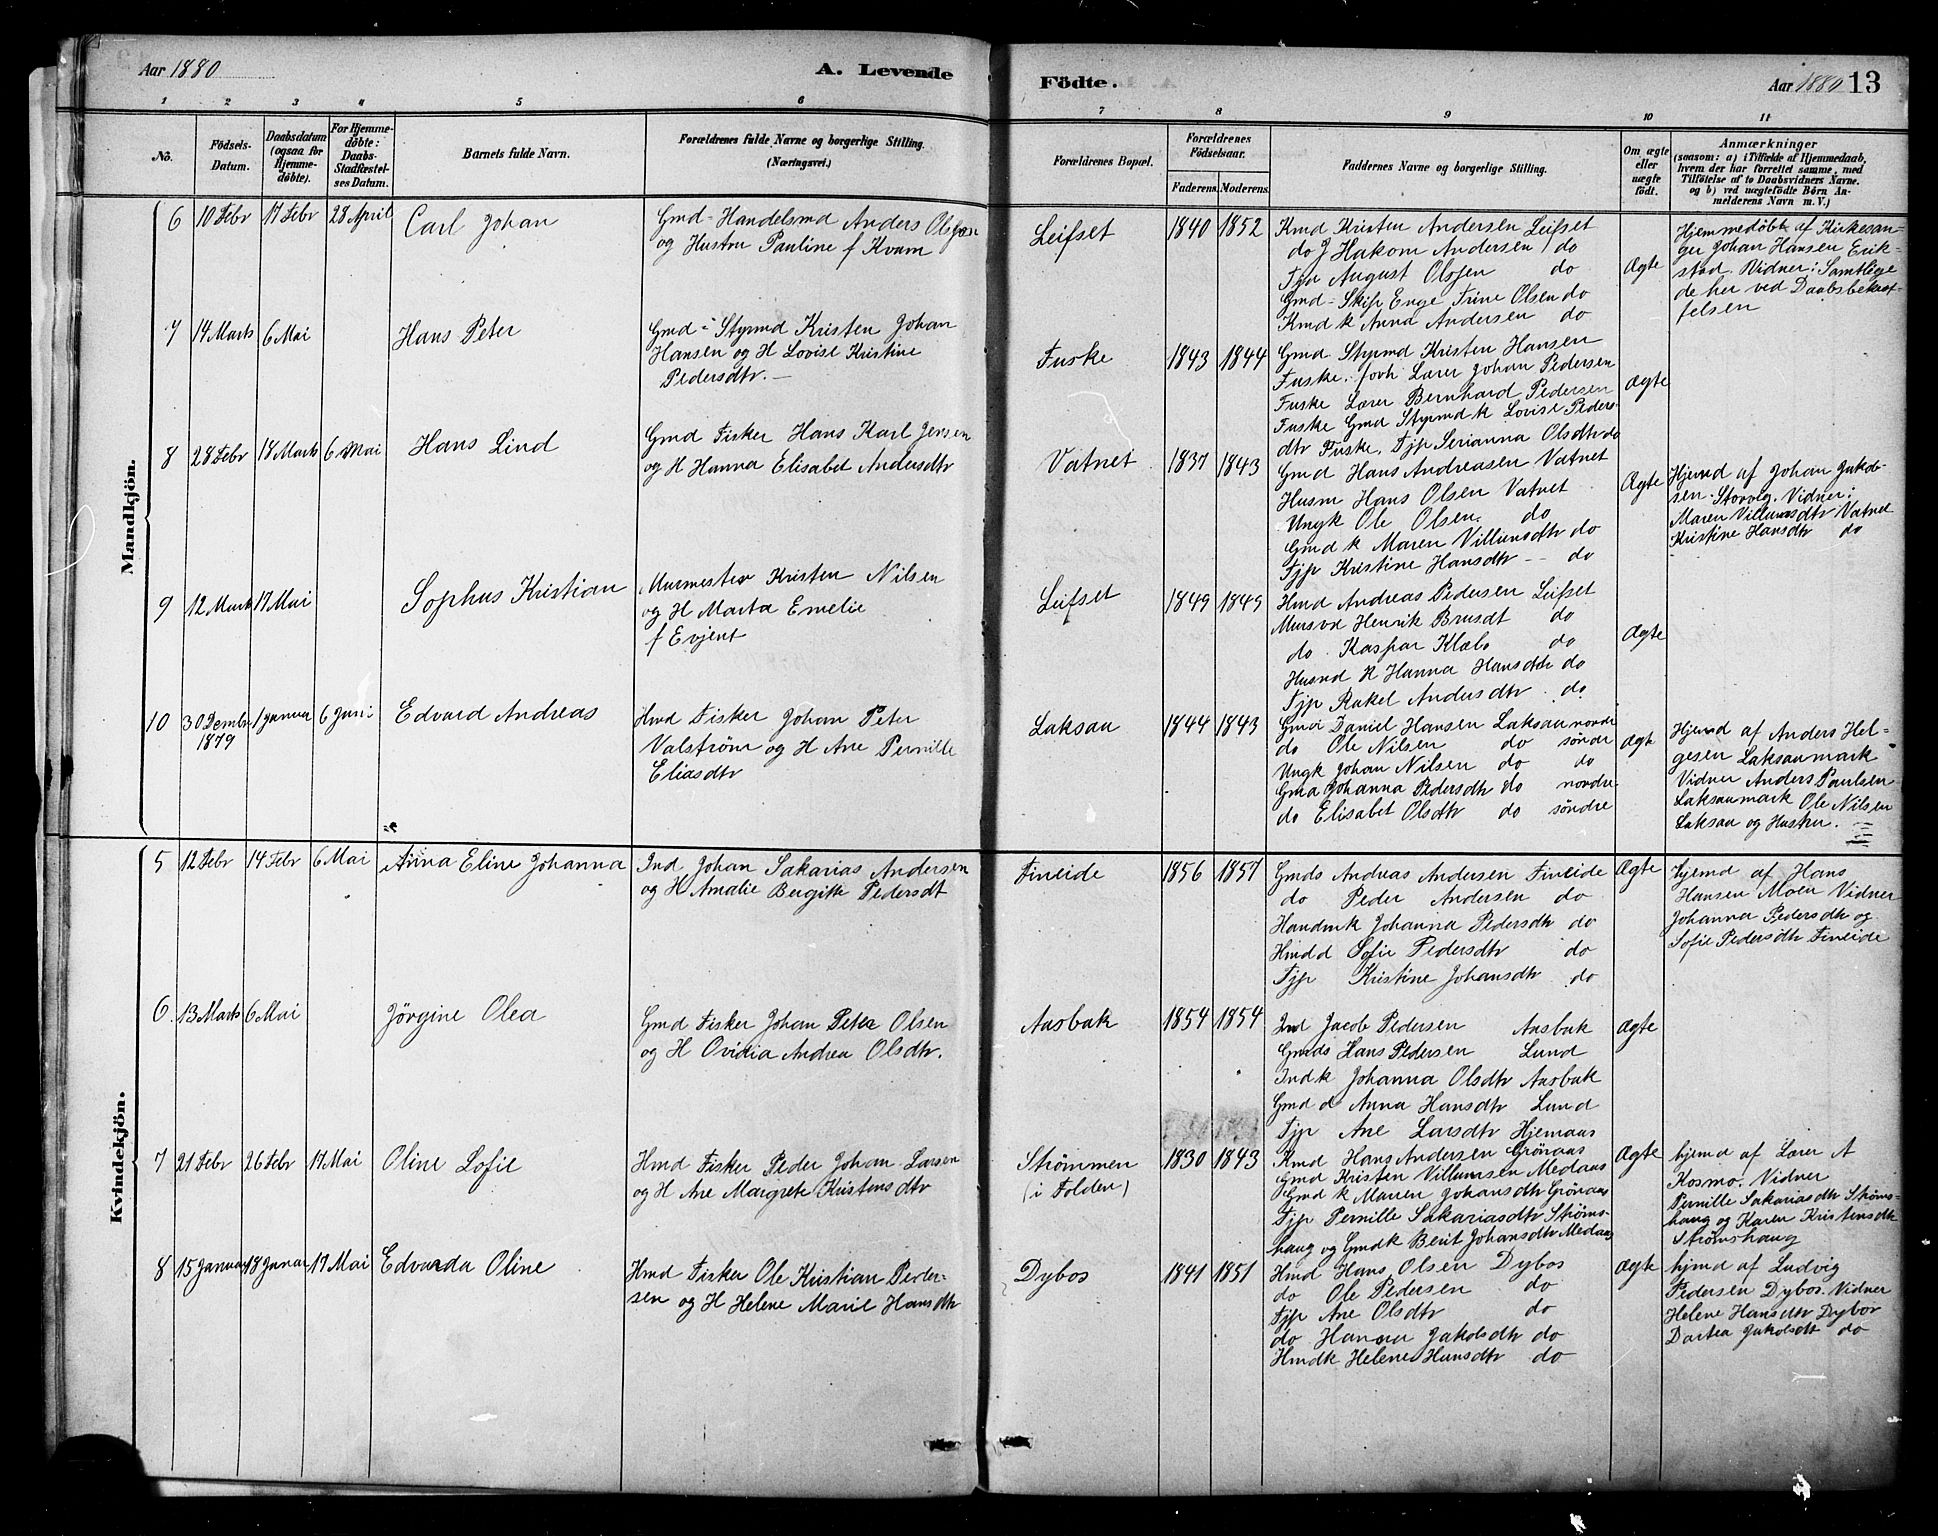 Aar 1880
A. Levende
1 2 3 4 5 6
No.
Födsels-
Datum.
Daabsdatum
(ogsaa for
Hjemme-
döbte).
For Hjemme-
döbte:
Daabs-
Stadfæstel-
ses Datum.
Barnets fulde Navn.
Forældrenes fulde Navne og borgerlige Stilling.
(Næringsvei.)
Mandkjön.
6 10 Febr 17 Febr 28 April Carl Johan
Gmd - Handelsmd Anders Olsen
og Hustru Pauline f Kvam
7 14 Marts 6 Mai Hans Peter
Gmd i Styrmd Kristen Johan
Hansen og H Lovise Kristine
Pedersdtr. —
8 28 Febr 18 Marts 6 Mai Hans Lind
Gmd Fisker Hans Karl Jensen
og H Hanna Elisabet Andersdtr
9 12 Marts 17 Mai Sophus Kristian
Murmester Kristen Nilsen
og H Marta Emelie
f Evjent
10 30 Decmbr 1 Januar 6 Juni Edvard Andreas
1879
Hmd Fisker Johan Peter
Valstrøm og H Ane Pernille
Eliasdtr
Kvindekjön.
5 12 Febr 14 Febr 6 Mai Anna Eline Johanna
Ind Johan Sakarias Andersen
og H Amalie Bergitte Pedersdt
6. 13 Marts 6 Mai Jörgine Olea
Gmd Fisker Johan Peter Olsen
og H Ovidia Andrea Olsdtr.
7 21 Febr 26 Febr 17 Mai Oline Sofie
Hmd Fisker Peder Johan Larsen
og H Ane Margrete Kristensdtr
8 15 Januar 18 Januar 17 Mai Edvarda Oline
Hmd Fisker Ole Kristian Peder-
sen og H Helene Marie Hansdtr
Födte.
Aar 1880 13
7 8 9 10 11
Forældrenes Bopæl.
Forældrenes
Födselsaar.
Faderens. Moderens.
Faddernes Navne og borgerlige Stilling.
Om ægte
eller
uægte
födt.
Anmærkninger
(saasom: a) i Tilfælde af Hjemmedaab,
hvem der har forrettet samme, med
Tilföielse af to Daabsvidners Navne.
og b) ved uægtefödte Börn An-
melderens Navn m. V.)
Leifset 1840 1852
Kmd Kristen Andersen Leifset
do J Hakon Andersen do
Tjp August Olsen do
Gmd - Skip Enge Trine Olsen do
Kmd k Anna Andersen do
Ægte
Hjemmedøbt af Kirkesan-
ger Johan Hansen Erik-
stad. Vidner: Samtlige
de her ved Daabsbekræf-
telsen
Fuske 1843 1844
Gmd Styrmd Kristen Hansen
Fuske. forh Lærer Johan Pedersen
Fuske Lærer Bernhard Pedersen
Fuske Gmd Styrmd k Lovise Peders-
dtr Fuske. Tjp Serianna Olsdtr do
Ægte
Vatnet 1837 1843
Gmd Hans Andreasen Vatnet
Husm Hans Olsen Vatnet
Ungk Ole Olsen. do
Gmd k Maren Villumsdtr do
Tjp Kristine Hansdtr - do
Ægte
Hjemd af Johan Jakob-
sen Storvig. Vidner:
Maren Villumsdtr Vatnet
Kristine Hansdtr do
Leifset 1849 1849
Hmd Andreas Pedersen Leifset
Mursvd Henrik Brusdt do
do. Kaspar Klæbo do
Husmd k Hanna Hansdtr do
Tjp Rakel Andersdtr. do
Ægte
Laksaa 1844 1843
Gmd Daniel Hansen Laksaa nordr
do Ole Nilsen do søndr
Ungk Johan Nilsen do do
Gmd Johanna Pedersdtr do nordre
do Elisabet Olsdtr do søndre
Ægte
Hjemd af Anders Hel-
gesen Laksaamark
Vidner Anders Paulsen
Laksaamark Ole Nilsen
Laksaa og Hustru.
Fineide 1856 1857
Gmds Andreas Andersen Fineide
do Peder Andersen do
Handmk Johanna Pedersdtr do
Hmd d Sofie Pedersdtr do
Tjp Kristine Johansdtr do
Ægte
hjemd af Hans
Hansen Moen Vidner
Johanna Pedersdtr og
Sofie Pedersdtr Fineide
Aasbak 1854 1854
Ind Jacob Pedersen Aasbak
Gmds Hans Pedersen Lund
Ind k Johanna Olsdtr Aasbak
Gmd d Anna Hansdtr Lund
Tjp Ane Larsdtr Hjemaas
Ægte
Strømmen
(i Folden)
1830 1843
Kmd Hans Andersen Grönaas
Gmd Kristen Villumsen Medaas
Gmd k Maren Johansdtr Grönaas
Tjp Pernille Sakariasdtr Strøms-
haug og Gmdk Berit Johansdtr Medaas
Ægte
hjemd af Lærer A
Kosmo. Vidner
Pernille Sakariasdtr Strøms-
haug og Karen Kristensdtr
Strømshaug
Dybos 1841 1851
Hmd Hans Olsen Dybos
do Ole Pedersen do
Tjp Ane Olsdtr do
do Hanna Jakobsdtr do
Hmdk Helene Hansdtr do
Ægte
hjemd af Ludvig
Pedersen Dybos. Vidner
Helene Hansdtr Dybos
Dortea Jakobsdtr do